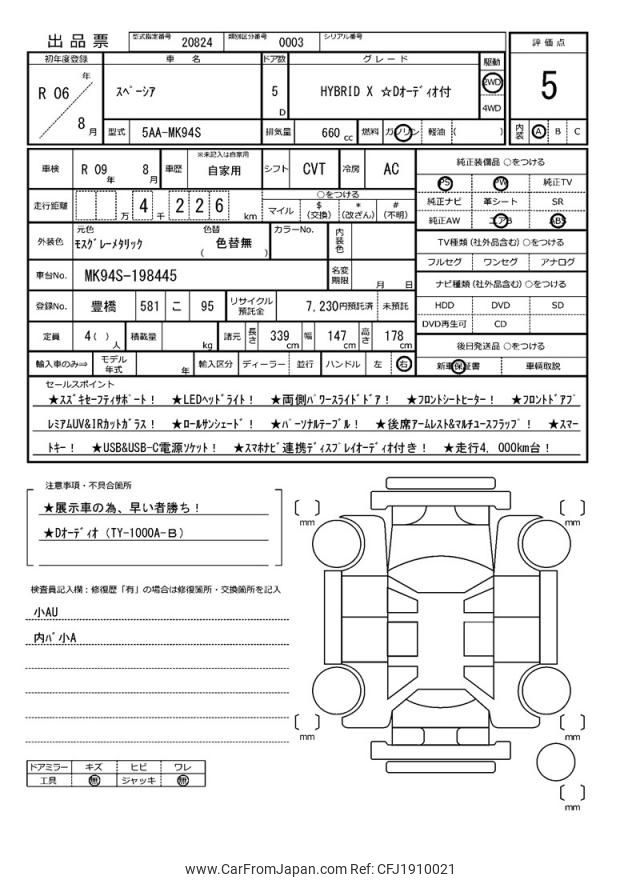 出品票
型式指定番号 20824 類別区分番号 0003 シリアル番号
評価点
初年度登録 車名 ドア数 グレード 駆動
R 06 年 8 月
スペーシア 5 D HYBRID X ☆Dオーディオ付 2WD 4WD
5
型式 5AA-MK94S 排気量 660 cc 燃料 ガソリン 軽油 ( )
内装 A B C
車検 R 09 年 8 月 車歴 ※未記入は自家用 自家用 シフト CVT 冷房 AC
純正装備品 ○をつける
PS PW 純正TV
純正ナビ 革シート SR
純正AW エアB ABS
走行距離 万 4 千 2 2 6 km
○をつける
マイル $ (交換) * (改ざん) # (不明)
外装色 元色 モスグレーメタリック 色替 ( 色替無 ) カラーNo. 内装色
TV種類 (社外品含む) ○をつける
フルセグ ワンセグ アナログ
車台No. MK94S-198445 名変期限 月 日
ナビ種類 (社外品含む) ○をつける
HDD DVD SD
DVD再生可 CD
登録No. 豊橋 581 こ 95 リサイクル預託金 7,230円預託済 未預託
定員 4( ) 人 積載量 kg 諸元 長さ 339 cm 幅 147 cm 高さ 178 cm
後日発送品 ○をつける
新車保証書 車輌取説
輸入車のみ⇒ モデル年式 年 輸入区分 ディーラー 並行 ハンドル 左 右
セールスポイント
★スズキセーフティサポート! ★LEDヘッドライト! ★両側パワースライドドア! ★フロントシートヒーター! ★フロントドアプ
レミアムUV&IRカットガラス! ★ロールサンシェード! ★パーソナルテーブル! ★後席アームレスト&マルチユースフラップ! ★スマー
トキー! ★USB&USB-C電源ソケット! ★スマホナビ連携ディスプレイオーディオ付き! ★走行4,000km台!
注意事項・不具合箇所
★展示車の為、早い者勝ち!
★Dオーディオ(TY-1000A-B)
検査員記入欄:修復歴「有」の場合は修復箇所・交換箇所を記入
小AU
内バ小A
ドアミラー キズ ヒビ ワレ
工具 無 ジャッキ 無
[ ] mm
[ ] mm
[ ] mm
[ ] mm
[ ] mm
www.CarFromJapan.com Ref: CFJ1910021